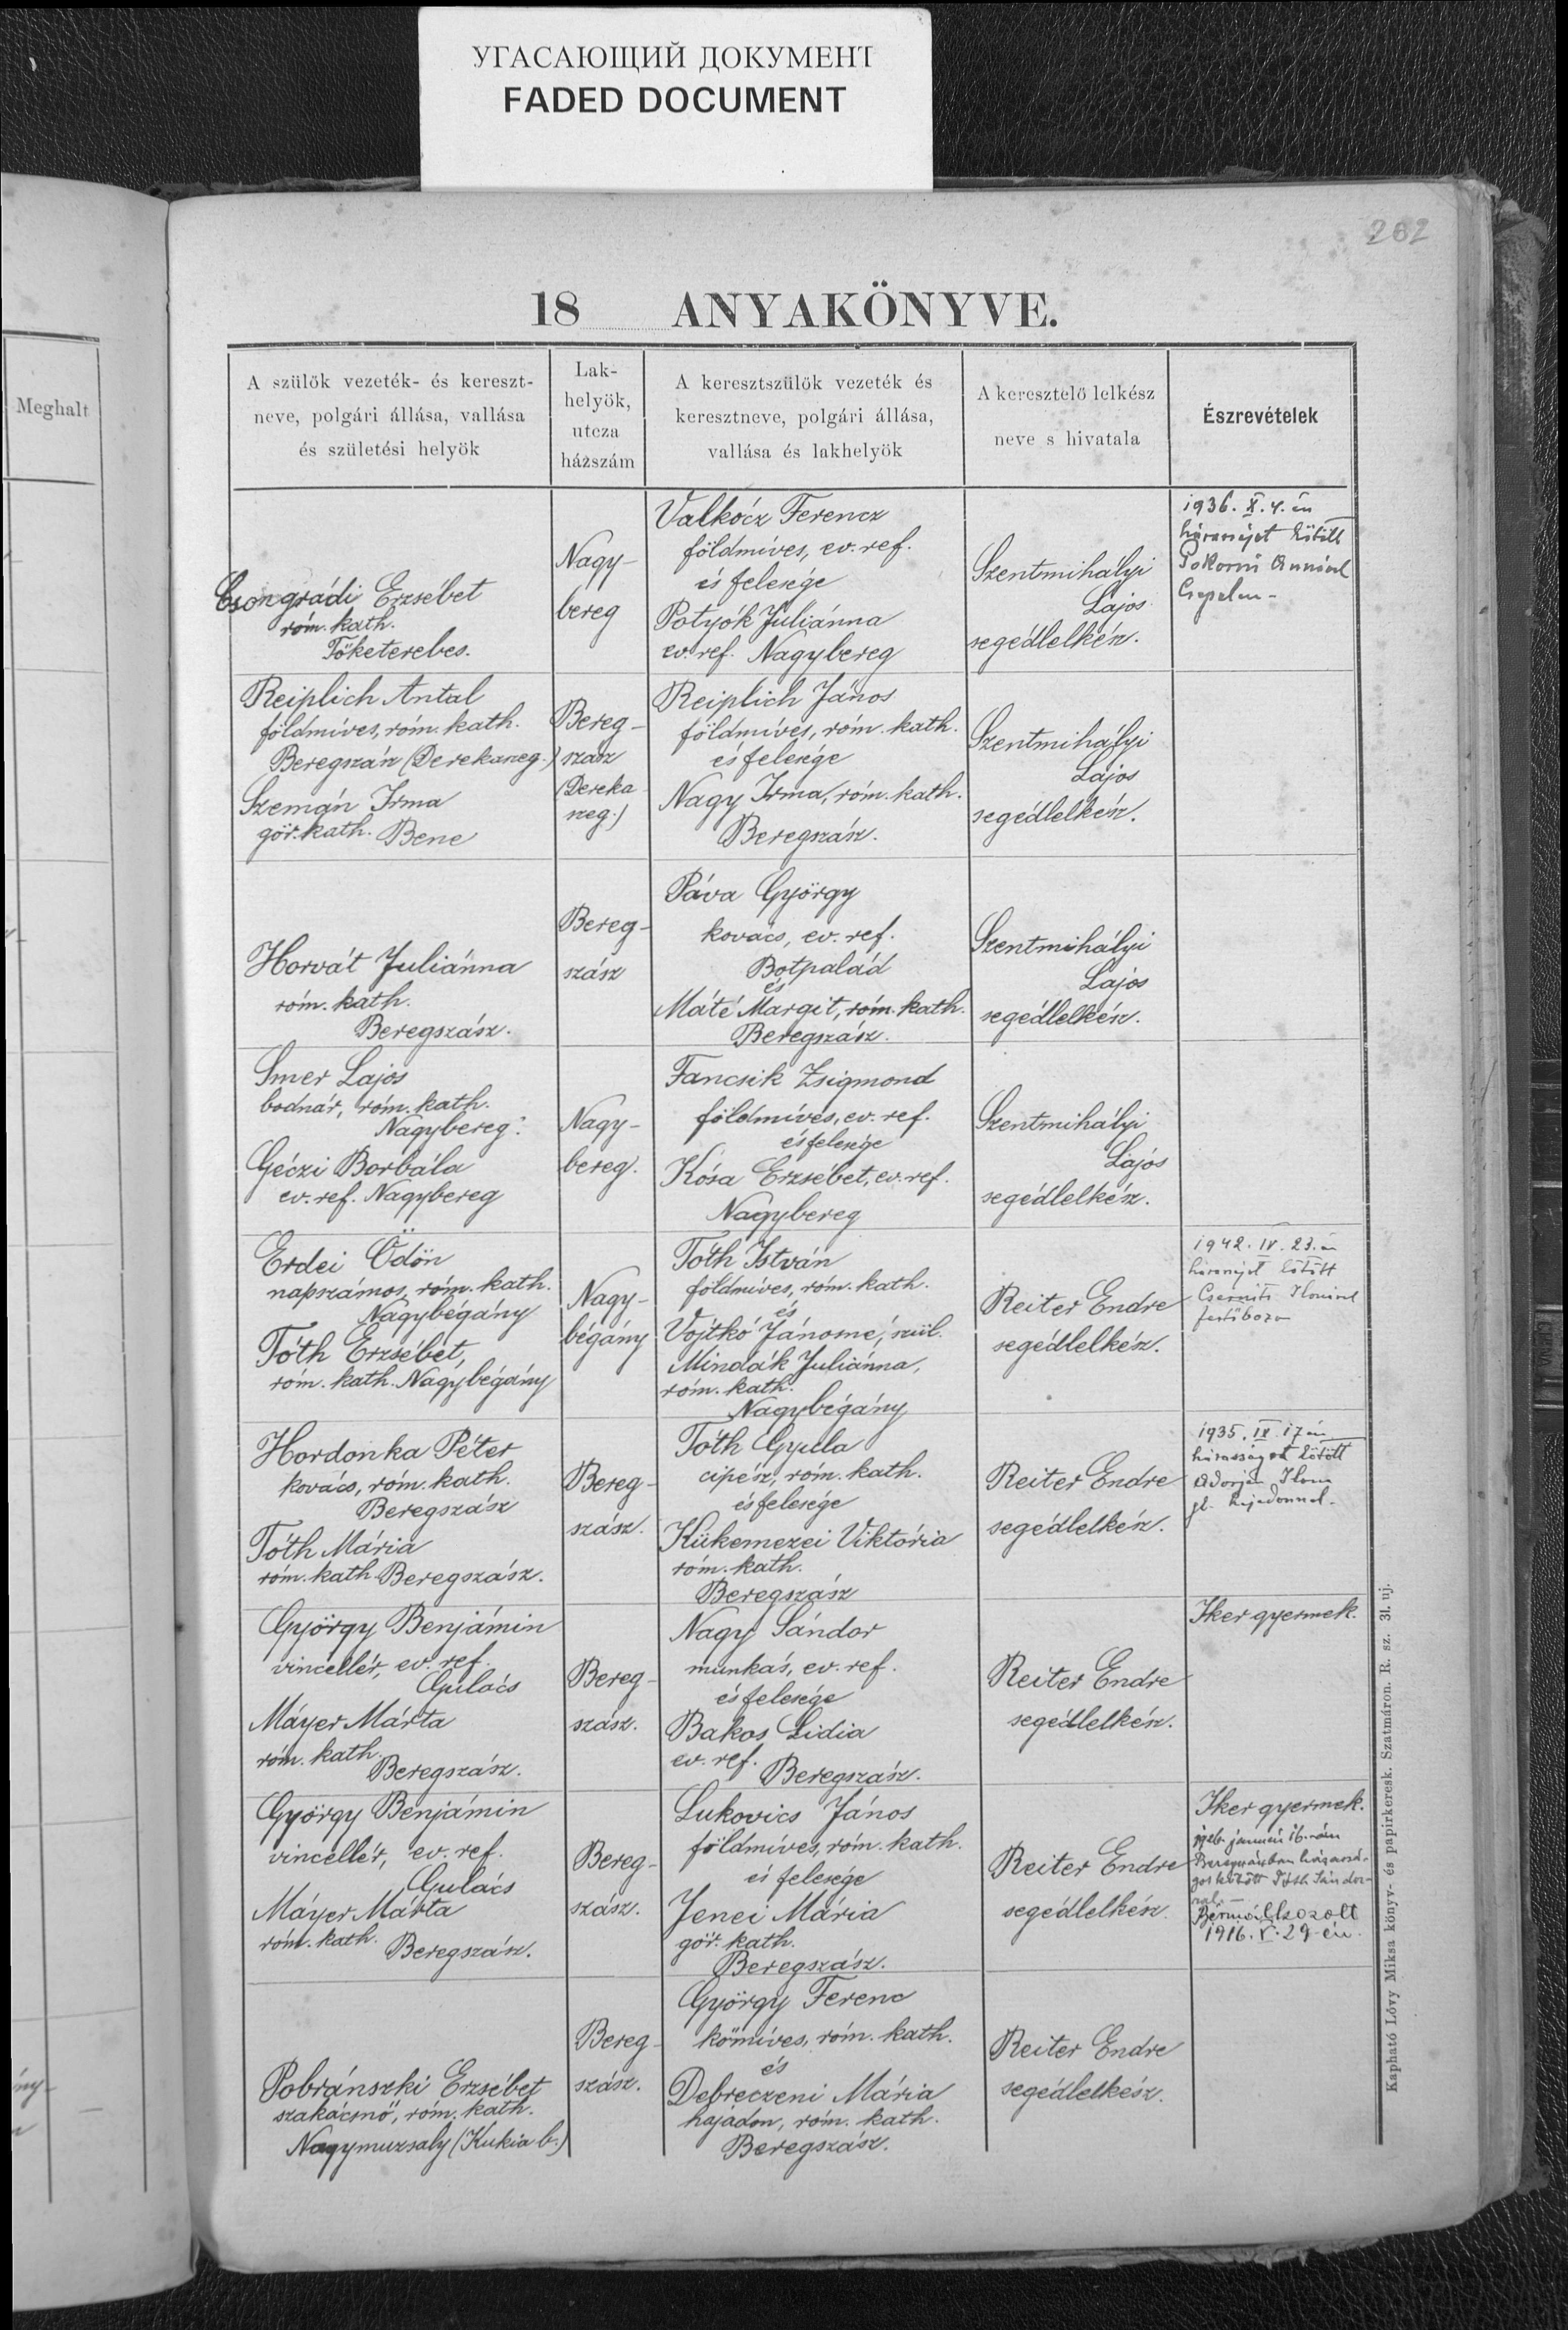 УГАСАЮЩИЙ ДОКУМЕНТ
FADED DOCUMENT
262
18 ANYAKÖNYVE.
Meghalt
A szülők vezeték- és kereszt-
neve, polgári állása, vallása
és születési helyök
Lak-
helyök,
utcza
házszám
A keresztszülők vezeték és
keresztneve, polgári állása,
vallása és lakhelyök
A keresztelő lelkész
neve s hivatala
Észrevételek
Csongrádi Erzsébet
róm. kath.
Tőketerebes.
Nagy-
bereg
Valkócz Ferencz
földmíves, ev. ref.
és felesége
Potyók Juliánna
ev. ref. Nagybereg
Szentmihályi
Lajos
segédlelkész.
1936. X. 4. én
házasságot kötött
Pokorni Annával
Csepelen-
Reiplich Antal
földmíves, róm. kath.
Beregszász (Derekaneg.)
Szemán Irma
gör. kath. Bene
Bereg-
szász
(Dereka
neg.)
Reiplich János
földmíves, róm. kath.
és felesége
Nagy Irma, róm. kath.
Beregszász.
Szentmihályi
Lajos
segédlelkész.
Horvát Juliánna
róm. kath.
Beregszász.
Bereg-
szász
Páva György
kovács, ev. ref.
Botpalád
és
Máté Margit, róm. kath.
Beregszász.
Szentmihályi
Lajos
segédlelkész.
Imer Lajos
bodnár, róm. kath.
Nagybereg.
Géczi Borbála
ev. ref. Nagybereg
Nagy-
bereg.
Fancsik Zsigmond
földmíves, ev. ref.
és felesége
Kósa Erzsébet, ev. ref.
Nagybereg
Szentmihályi
Lajos
segédlelkész.
Erdei Ödön
napszámos, róm. kath.
Nagybégány
Tóth Erzsébet,
róm. kath. Nagybégány
Nagy-
bégány
Tóth István
földmíves, róm. kath.
és
Vojtkó Jánosné, szül.
Mindák Juliánna,
róm. kath.
Nagybégány
Reiter Endre
segédlelkész.
1942. IV. 23. án
házasságot kötött
Ilonával
Hordonka Péter
kovács, róm. kath.
Beregszász
Tóth Mária
róm. kath. Beregszász.
Bereg-
szász.
Tóth Gyula
cipész, róm. kath.
és felesége
Kükemezei Viktória
róm. kath.
Beregszász
Reiter Endre
segédlelkész.
1935. IX. 17 én
házasságot kötött
Adorján Ilona
hajadonnal.
György Benjámin
vincellér, ev. ref.
Gulács
Máyer Márta
róm. kath.
Beregszász.
Bereg-
szász.
Nagy Sándor
munkás, ev. ref.
és felesége
Bakos Lidia
ev. ref.
Beregszász.
Reiter Endre
segédlelkész.
Iker gyermek.
György Benjámin
vincellér, ev. ref.
Gulács
Máyer Márta
róm. kath.
Beregszász.
Bereg-
szász.
Lukovics János
földmíves, róm. kath.
és felesége
Jenei Mária
gör. kath.
Beregszász.
Reiter Endre
segédlelkész.
Iker gyermek.
január 16.-án
Beregszászban házassá-
got kötött Tóth Sándor-
ral.-
Bérmálkozott
1916. V. 29-én.
Pobránszki Erzsébet
szakácsnő, róm. kath.
Nagymuzsaly (Kukia b.)
Bereg-
szász.
György Ferenc
kőmíves, róm. kath.
és
Debreczeni Mária
hajadon, róm. kath.
Beregszász.
Reiter Endre
segédlelkész.
Kapható Lővy Miksa könyv- és papirkeresk. Szatmáron. R. sz. 31. uj.